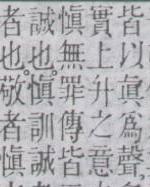 皆以眞為聲
實上升之意
愼無罪傳皆
誠也。愼訓誠
者也。敬者愼